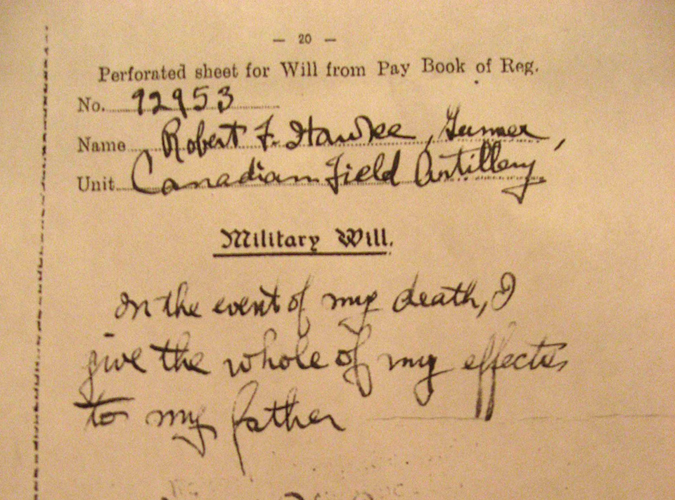 — 20 —
Perforated sheet for Will from Pay Book of Reg.
No. 92953
Name Robert F. Hawke, Gunner,
Unit Canadian Field Artillery.
Military Will.
In the event of my death, I
give the whole of my effects
to my father